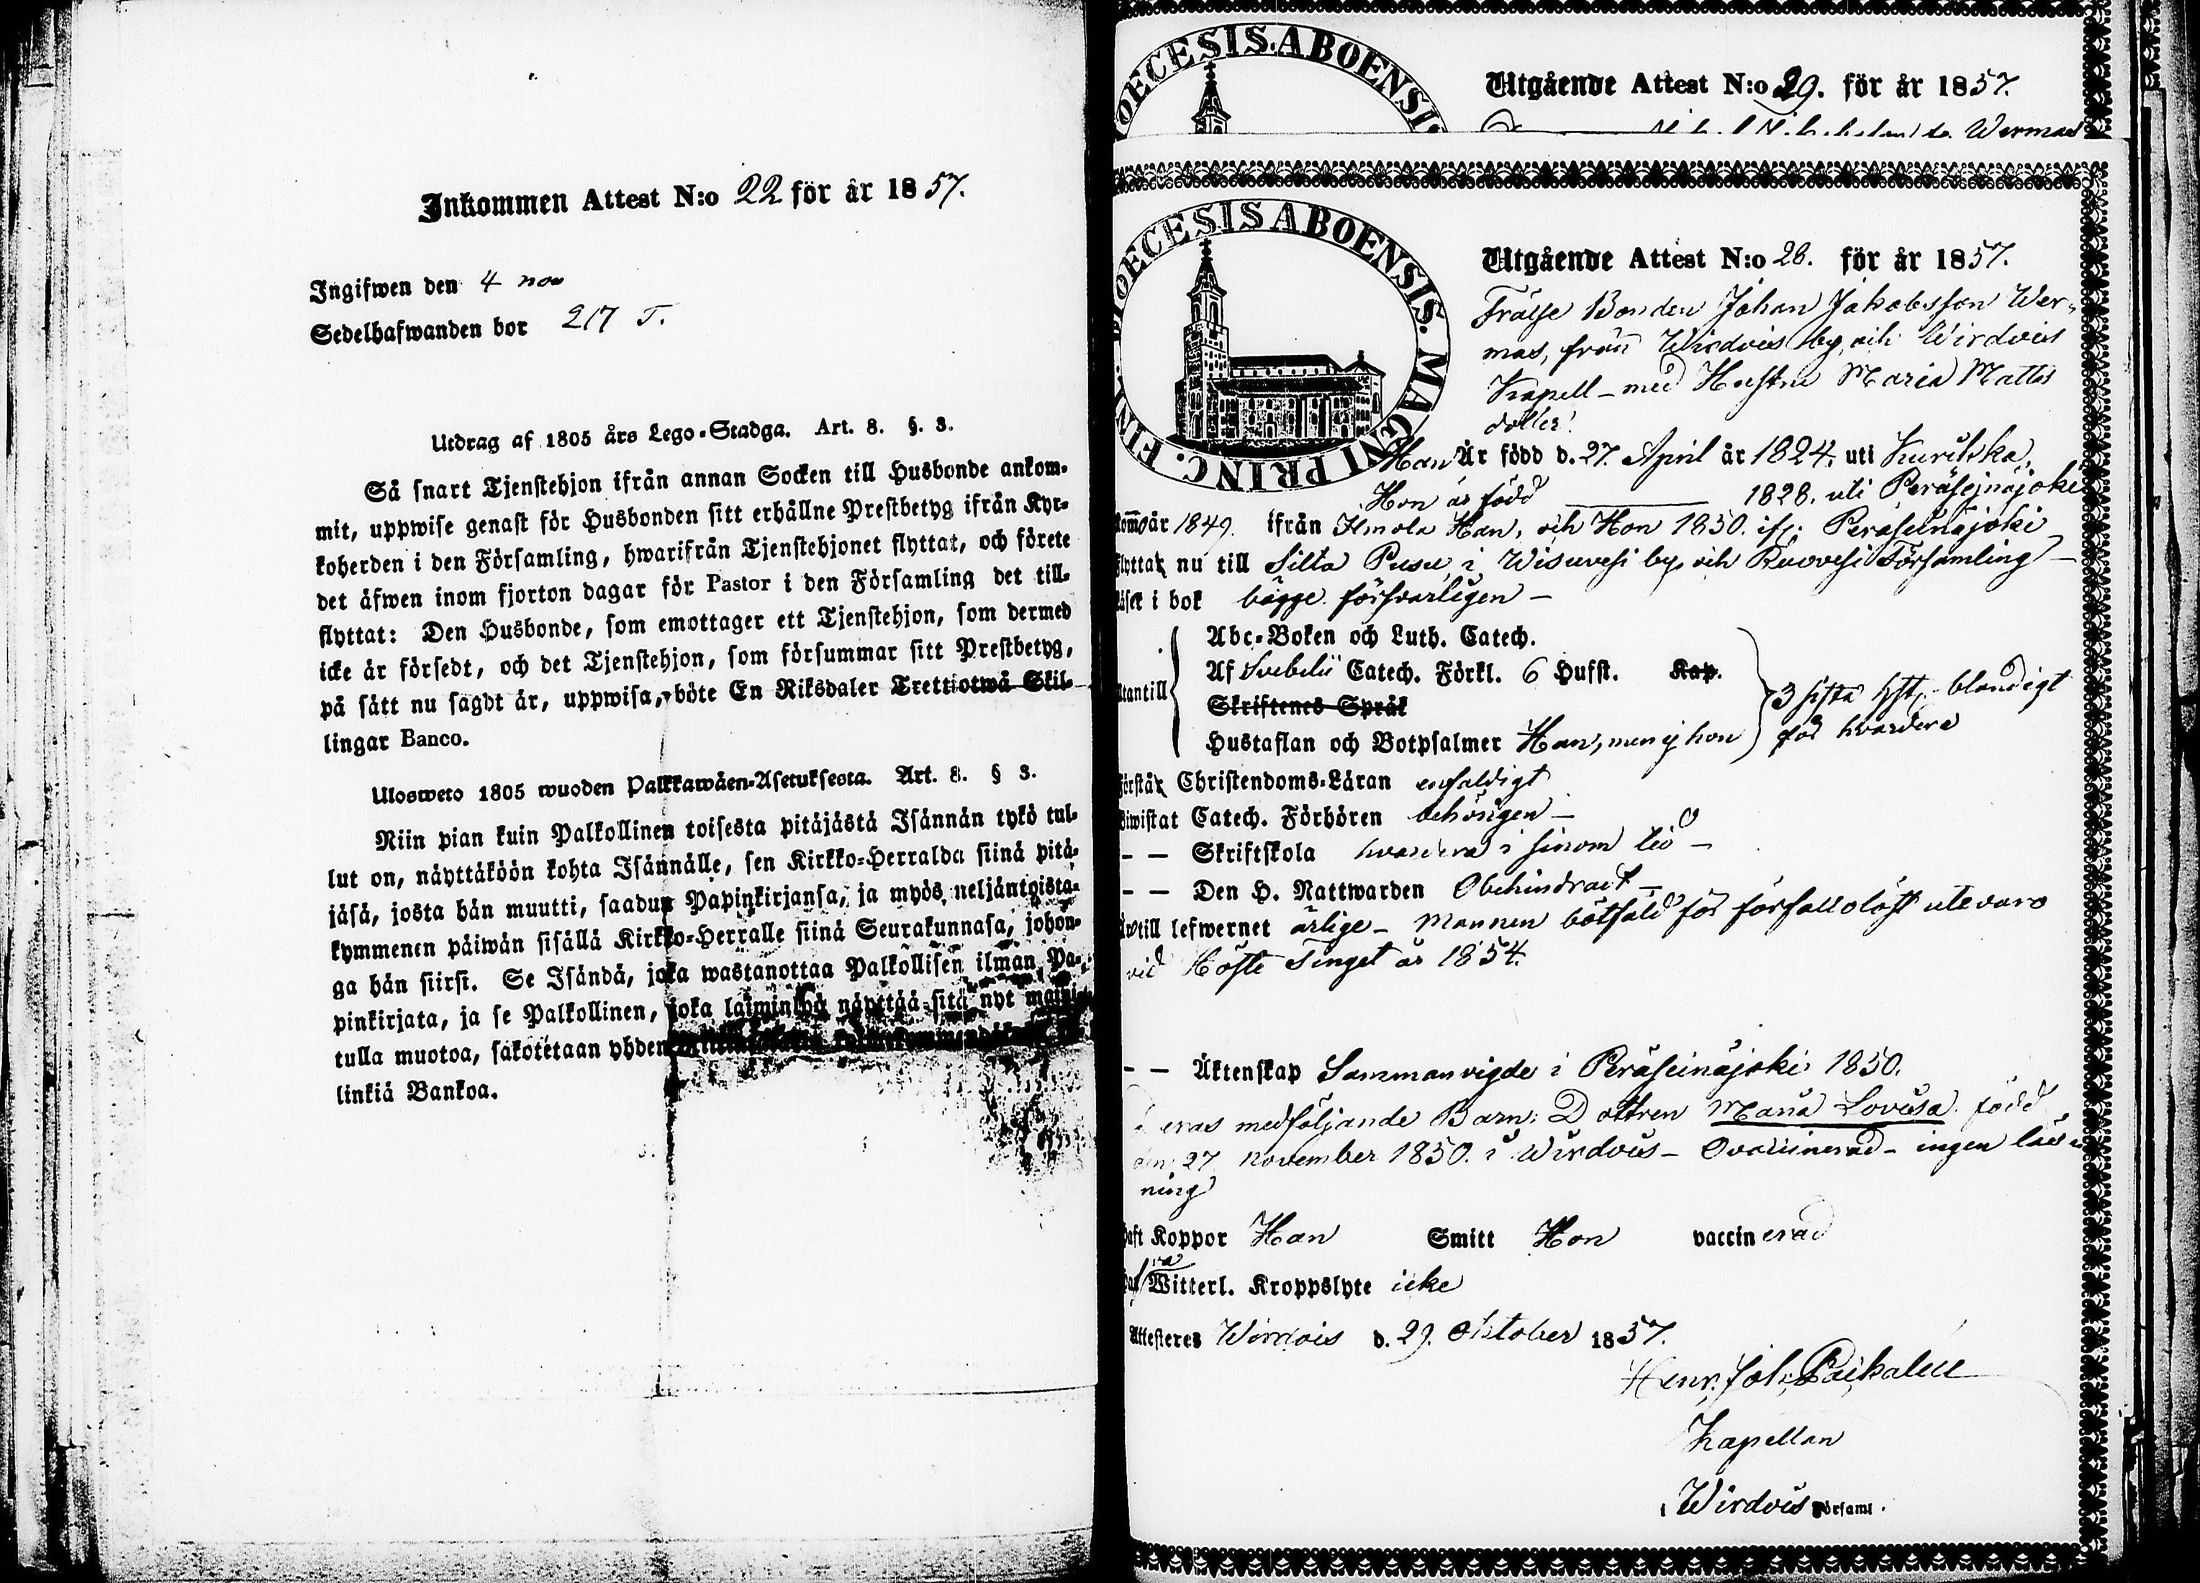 Inkommen Attest N:o 22 för år 1857.
Ingifwen den 4 nov
Sedelhafwanden bor 217 T.
Utdrag af 1805 års Lego-Stadga. Art. 8. §. 3.
Så snart Tjenstehjon ifrån annan Socken till Husbonde ankom-
mit, uppwise genast för Husbonden sitt erhållne Prestbetyg ifrån Kyr-
koherden i den Församling, hwarifrån Tjenstehjonet flyttat, och förete
det äfwen inom fjorton dagar för Pastor i den Församling det till-
flyttat: Den Husbonde, som emottager ett Tjenstehjon, som dermed
icke är försedt, och det Tjenstehjon, som försummar sitt Prestbetyg,
på sätt nu sagdt är, uppwisa, böte En Riksdaler Trettiotwå Skil-
lingar Banco.
Ulosweto 1805 wuoden Palkkawäen-Asetuksesta. Art. 8. § 3.
Niin pian kuin Palkollinen toisesta pitäjästä Isännän tykö tul-
lut on, näyttäköön kohta Isännälle, sen Kirkko-Herralda siinä pitä-
jäsä, josta hän muutti, saadun Papinkirjansa, ja myös neljäntoista-
kymmenen päiwän sisällä Kirkko-Herralle siinä Seurakunnasa, johon-
ga hän siirsi. Se Isändä, joka wastanottaa Palkollisen ilman Pa-
pinkirjata, ja se Palkollinen, joka laiminlyö näyttää sitä nyt mainit-
tulla muotoa, sakotetaan yhden
linkiä Bankoa.
DIOECESIS ABOENSIS.
Utgående Attest N:o 29. för år 1857.
Wermas
DIOECESIS ABOENSIS. MAGNI PRINC. FINL.
Utgående Attest N:o 28. för år 1857.
Frälse Bonden Johan Jakobsson Wer-
mas, från Wirdois by och Wirdois
Kapell - med Hustru Maria Matts
dotter.
Han Är född d. 27. April år 1824. uti Kurikka.
Hon är född 1828. uti Peräseinäjoki
Kommo år 1849. ifrån Ilmola Han, och Hon 1850. ifr. Peräseinäjoki
flyttat nu till Silta Pusu i Wisuvesi by och Ruovesi Församling -
Läser i bok bägge försvarligen -
Utantill
Abc-Boken och Luth. Catech.
Af Svebelii Catech. Förkl. 6 Hufst. Kap.
Skriftenes Språk
Hustaflan och Botpsalmer Han, men ej hon
3 sista hfst. blandigt
för hvardera
Förstår Christendoms-Läran enfaldigt
Biwistat Catech. Förhören behörigen -
- - Skriftskola hvardera i sinom tid -
- - Den H. Nattwarden Obehindradt -
till lefwernet ärlige - Mannen bötfäld för förfallolöst utevaro
vid Höste Tinget år 1854.
- - Äktenskap Sammanvigde i Peräseinäjoki 1850.
Deras medföljande Barn: Dottren Maria Lovisa född
den 27 november 1850. i Wirdois - Ovaccinerad - ingen läs-
ning
Haft Koppor Han Smitt Hon vaccinerad
Witterl. Kroppslyte icke
Attesteres Wirdois d. 29. Oktober 1857.
Henr. Joh.
Kapellan
i Wirdois Församl.